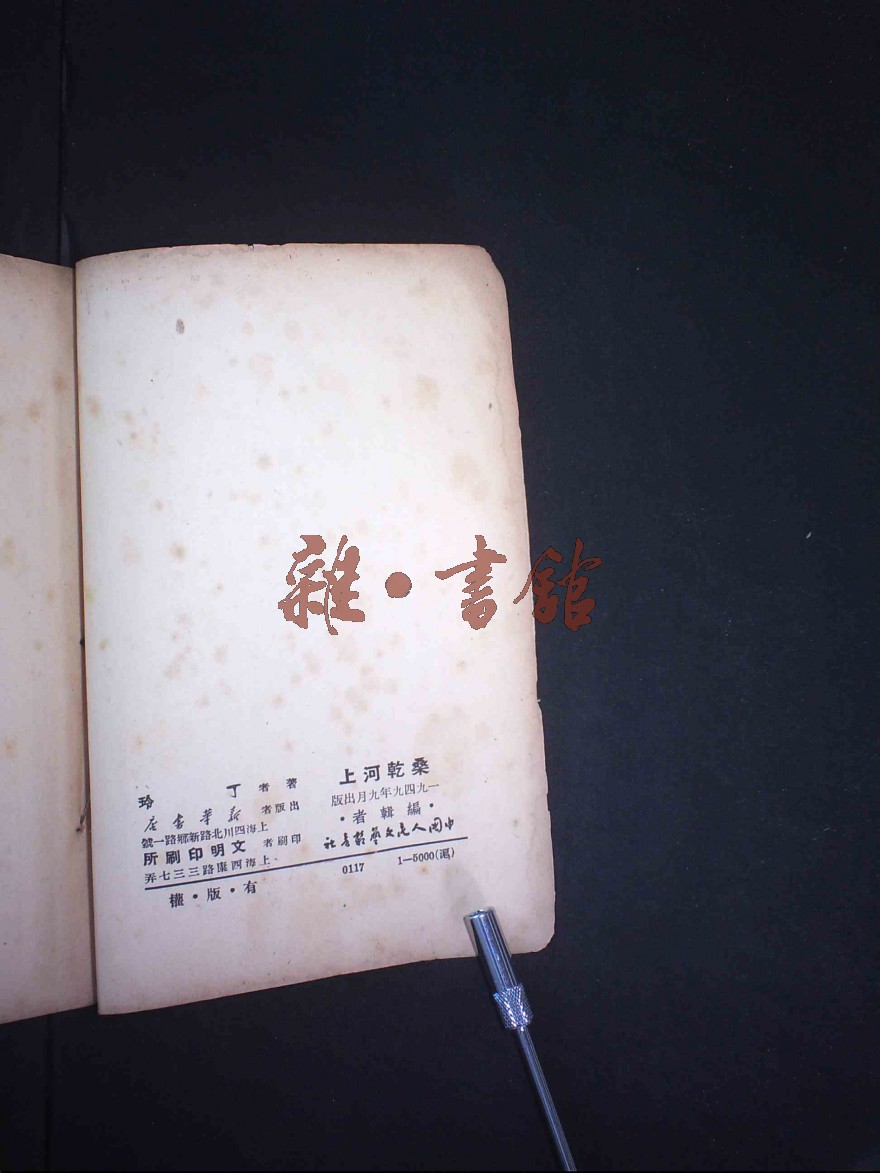 桑乾河上
一九四九年九月出版
·編輯者·
中國人民文藝叢書社
著者 丁玲
出版者 新華書店
上海四川北路新鄉路一號
印刷者 文明印刷所
上海西康路三三七弄
0117 1—5000(滬)
有·版·權
雜·書館